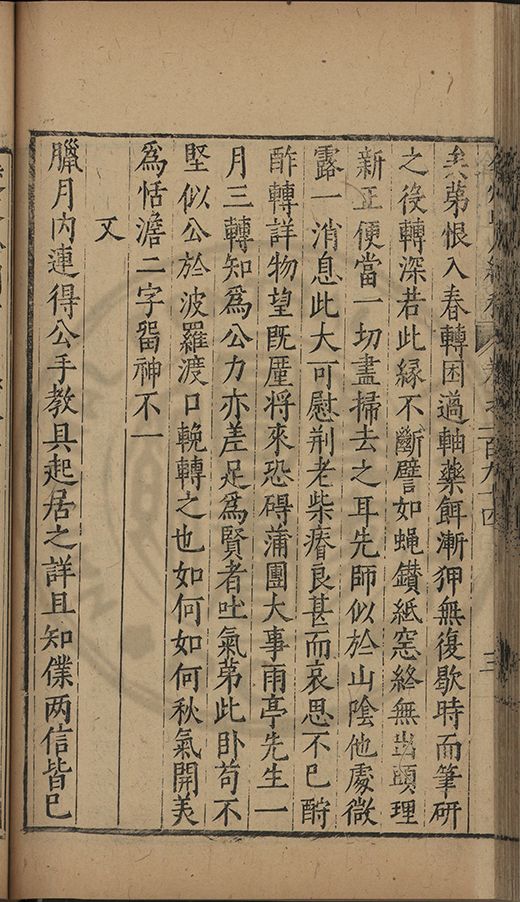 矣第恨入春轉困薖軸藥餌漸狎無復歇時而筆研
之役轉深若此緣不斷譬如蝿鑽紙窓終無出頭理
新正便當一切盡掃去之耳先師似於山陰他處微
露一消息此大可慰荆老柴瘠良甚而哀思不已酧
酢轉詳物望既厪將來恐碍蒲團大事雨亭先生一
月三轉知爲公力亦差足爲賢者吐氣第此卧苟不
堅似公於波羅渡口輓轉之也如何如何秋氣開美
爲恬澹二字畱神不一
又
臘月內連得公手教具起居之詳且知僕两信皆已
三